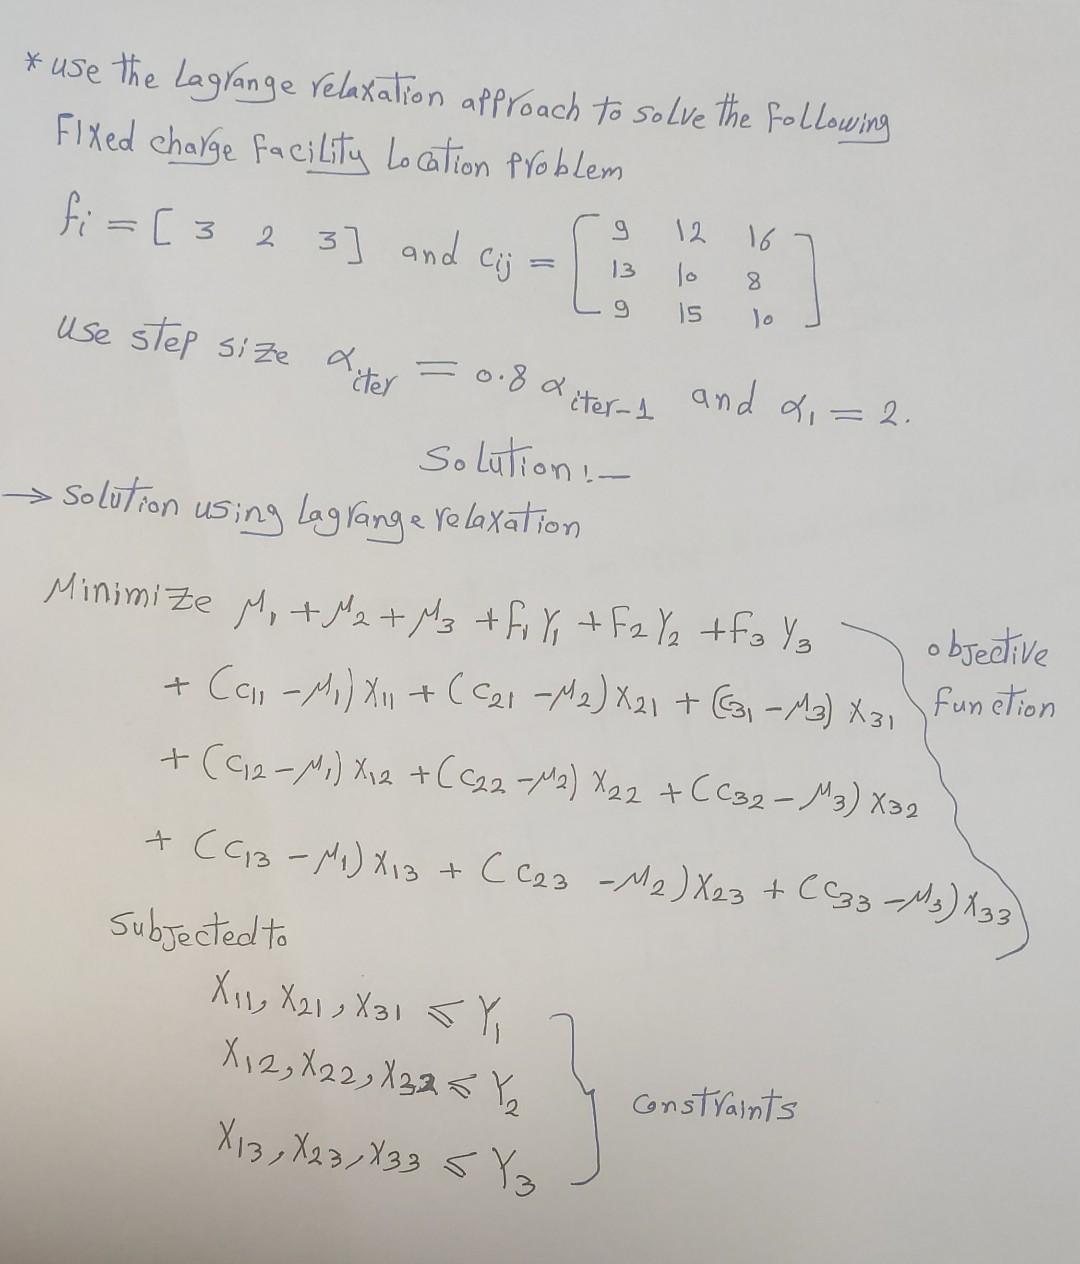 * use the Lagrange relaxation approach to solve the following
Fixed charge facility Location problem
fi = [ 3 2 3] and cij = [ 9 12 16
13 10 8
9 15 10 ]
use step size α iter = 0.8 α iter-1 and α1 = 2.
Solution:-
→ solution using Lagrange relaxation
Minimize μ1 + μ2 + μ3 + f1 Y1 + F2 Y2 + f3 Y3
objective function
+ (c11 - μ1) X11 + (c21 - μ2) X21 + (c31 - μ3) X31
+ (c12 - μ1) X12 + (c22 - μ2) X22 + (c32 - μ3) X32
+ (c13 - μ1) X13 + (c23 - μ2) X23 + (c33 - μ3) X33
Subjected to
X11, X21, X31 ≤ Y1
X12, X22, X32 ≤ Y2
constraints
X13, X23, X33 ≤ Y3